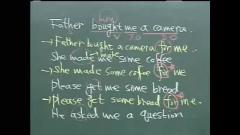 Father bought me a camera.
V I.O D.O
→ Father bought a camera for me.
She made me some coffee
→ She made some coffee for me
please get me some bread
→ please get some bread for me.
He asked me a question